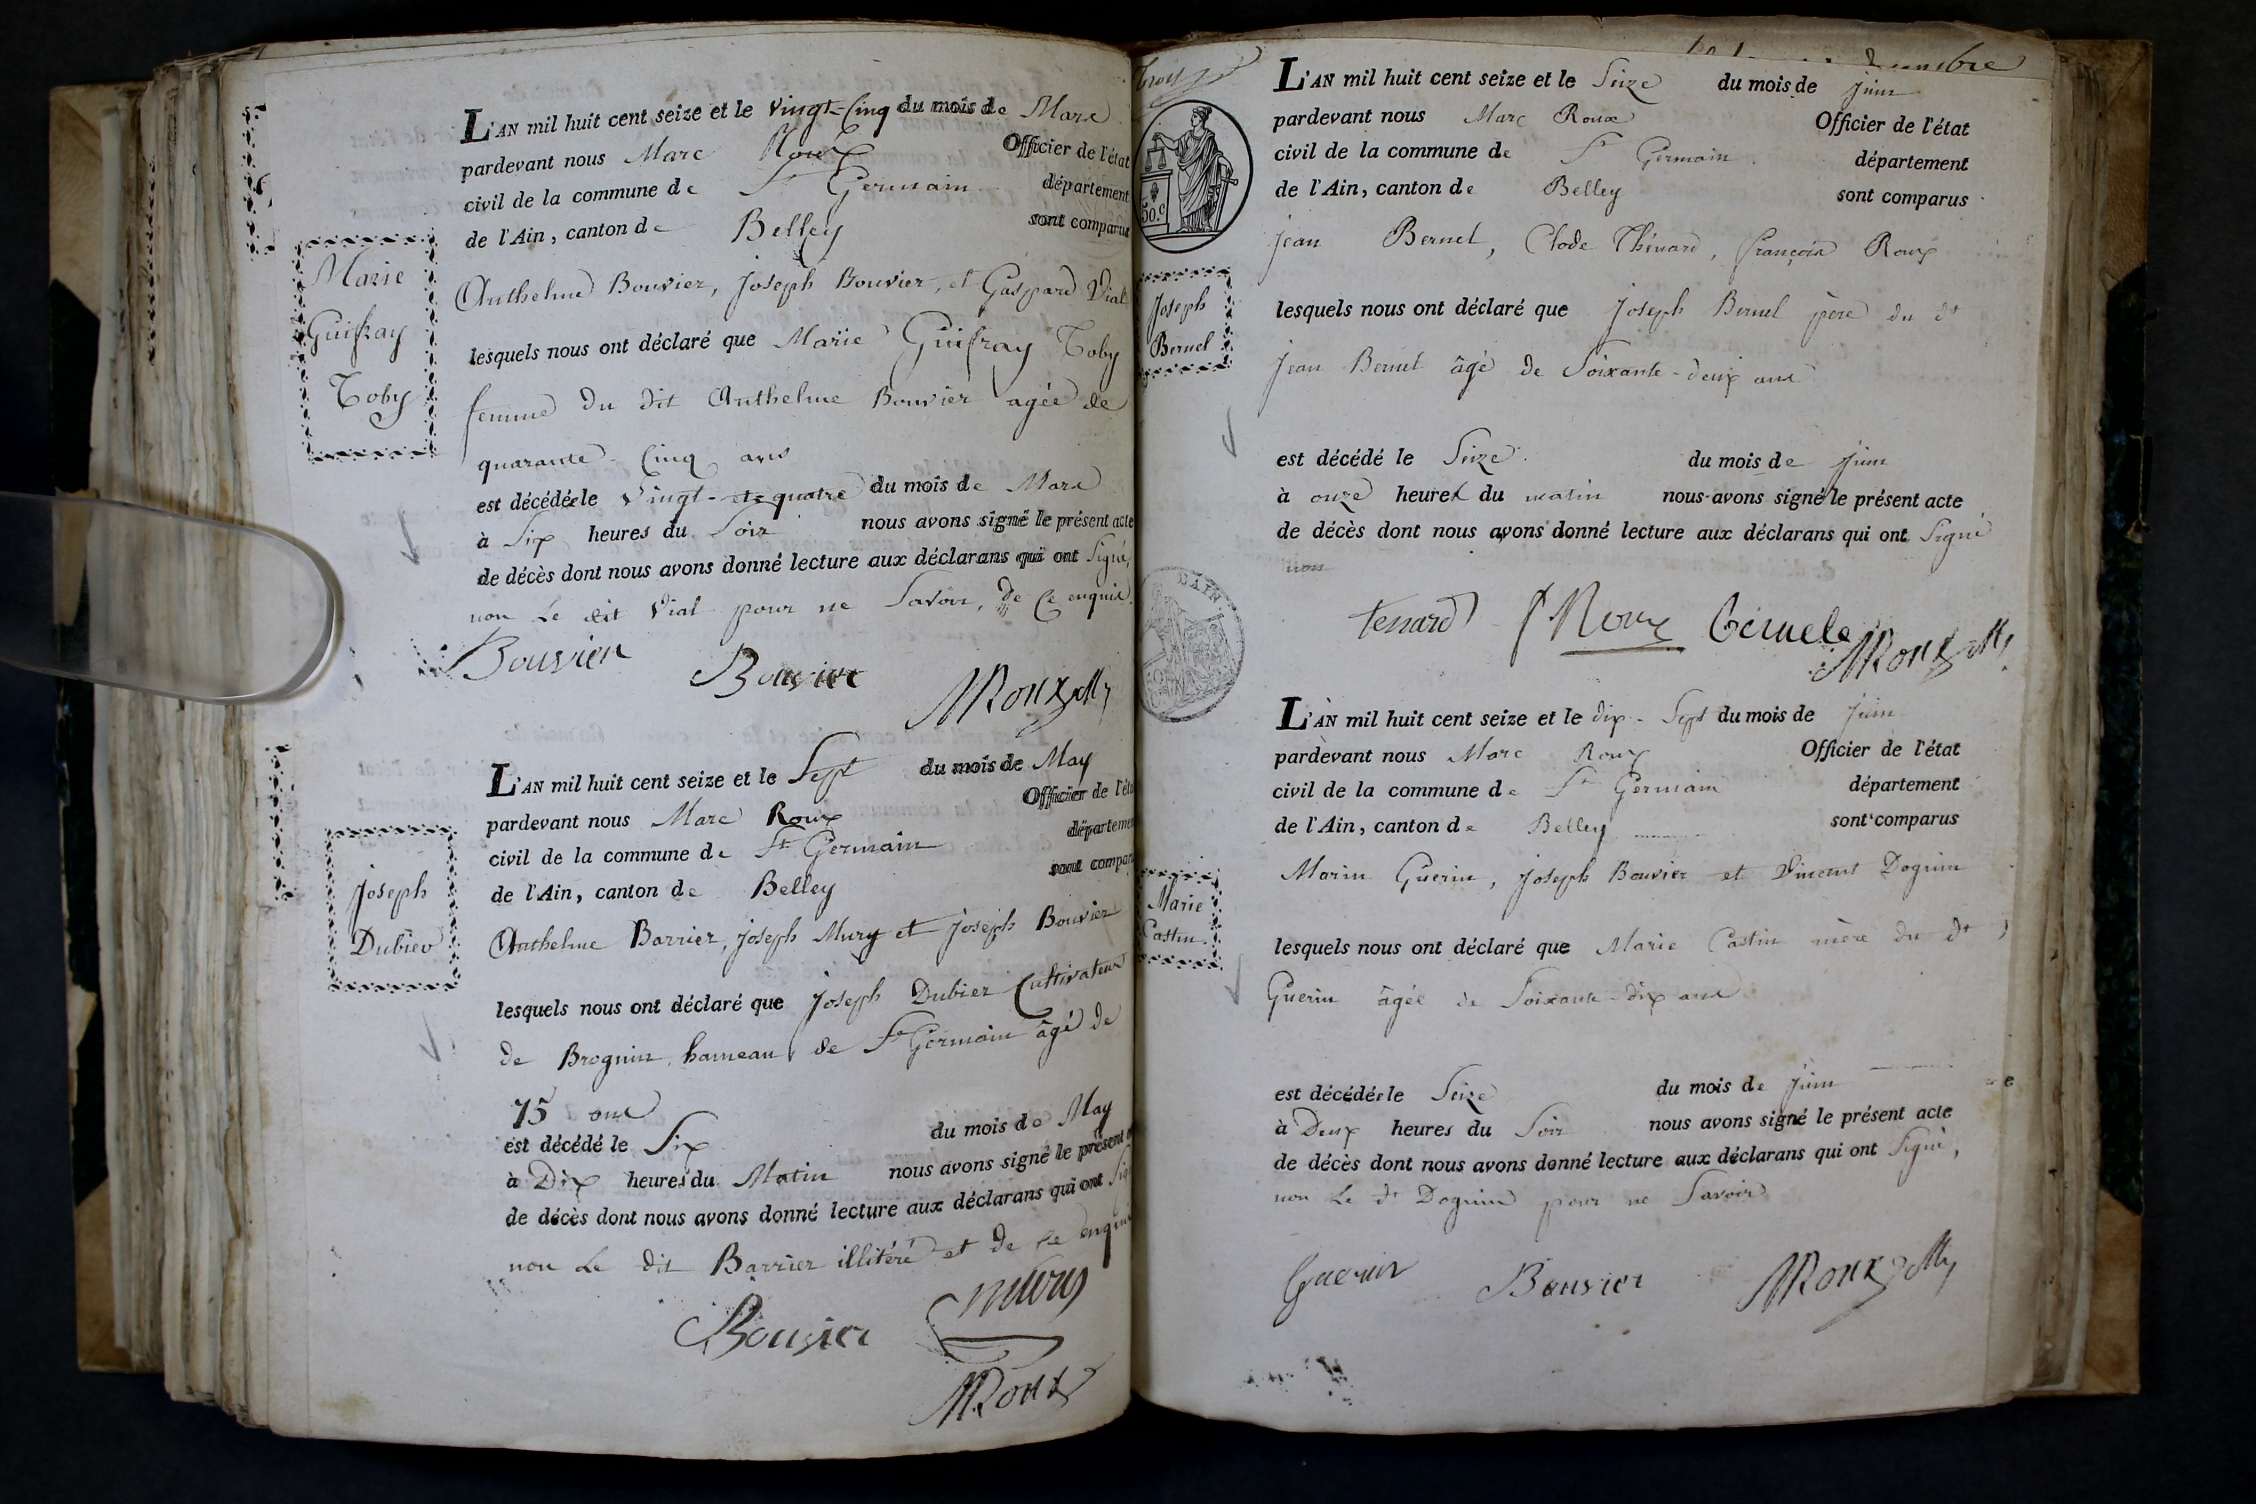 L'AN mil huit cent seize et le vingt-Cinq du mois de Mars
pardevant nous Marc Roux Officier de l'état
civil de la commune de St Germain département
de l'Ain, canton de Belley sont comparus
Anthelme Bouvier, Joseph Bouvier, et Gaspard Vial
Marie
Guifray
Toby
lesquels nous ont déclaré que Marie Guifray Toby
femme du dit Anthelme Bouvier agée de
quarante-Cinq ans
est décédée le Vingt-et-quatre du mois de Mars
à Six heures du Soir nous avons signé le présent acte
de décès dont nous avons donné lecture aux déclarans qui ont Signé,
non Le dit Vial pour ne Savoir, de Ce enquis.
Bouvier Bouvier MRoux
L'AN mil huit cent seize et le Sept du mois de May
pardevant nous Marc Roux Officier de l'éta
civil de la commune de St Germain départemen
de l'Ain, canton de Belley sont compar
Anthelme Barrier, Joseph Mury et Joseph Bouvier
Joseph
Dubiev
lesquels nous ont déclaré que Joseph Dubier Cultivateur
de Brognin hameau de St Germain âgé de
75 ans
est décédé le Six du mois de May
à Dix heures du Matin nous avons signé le présent
de décès dont nous avons donné lecture aux déclarans qui ont Sig
non Le dit Barrier illitéré et de ce enquis
Bouvier Mury
MRoux
Trois
L'AN mil huit cent seize et le Seize du mois de juin
pardevant nous Marc Roux Officier de l'état
civil de la commune de St Germain département
de l'Ain, canton de Belley sont comparus
50.c
jean Bernel, Clode Thénard, françois Roux
Joseph
Bernel
lesquels nous ont déclaré que Joseph Bernel père du dt
Jean Bernel âgé de Soixante-deux ans
est décédé le Seize du mois de juin
à onze heures du matin nous avons signé le présent acte
de décès dont nous avons donné lecture aux déclarans qui ont Signé
non
tenard f Roux Bernele MRoux
L'AN mil huit cent seize et le dix-Sept du mois de juin
pardevant nous Marc Roux Officier de l'état
civil de la commune de St Germain département
de l'Ain, canton de Belley sont comparus
Marin Guerin, Joseph Bouvier et Vincent Dognin
Marie
Castin
lesquels nous ont déclaré que Marie Castin mère du dt
Guerin âgée de Soixante-dix ans
est décédée le Seize du mois de juin
à Deux heures du Soir nous avons signé le présent acte
de décès dont nous avons donné lecture aux déclarans qui ont Signé,
non Le dt Dognin pour ne Savoir
Guerin Bouvier MRoux